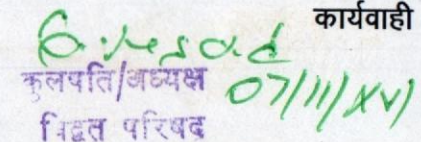 कार्यवाही
कुलपति/अध्यक्ष 07/11/XVI
विद्वत परिषद